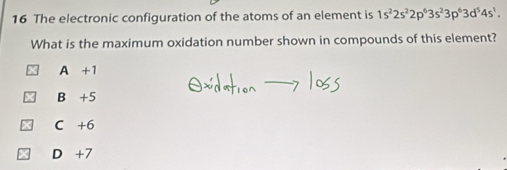 16 The electronic configuration of the atoms of an element is 1s²2s²2p⁶3s²3p⁶3d⁵4s¹.
What is the maximum oxidation number shown in compounds of this element?
A +1
Oxidation → loss
B +5
C +6
D +7